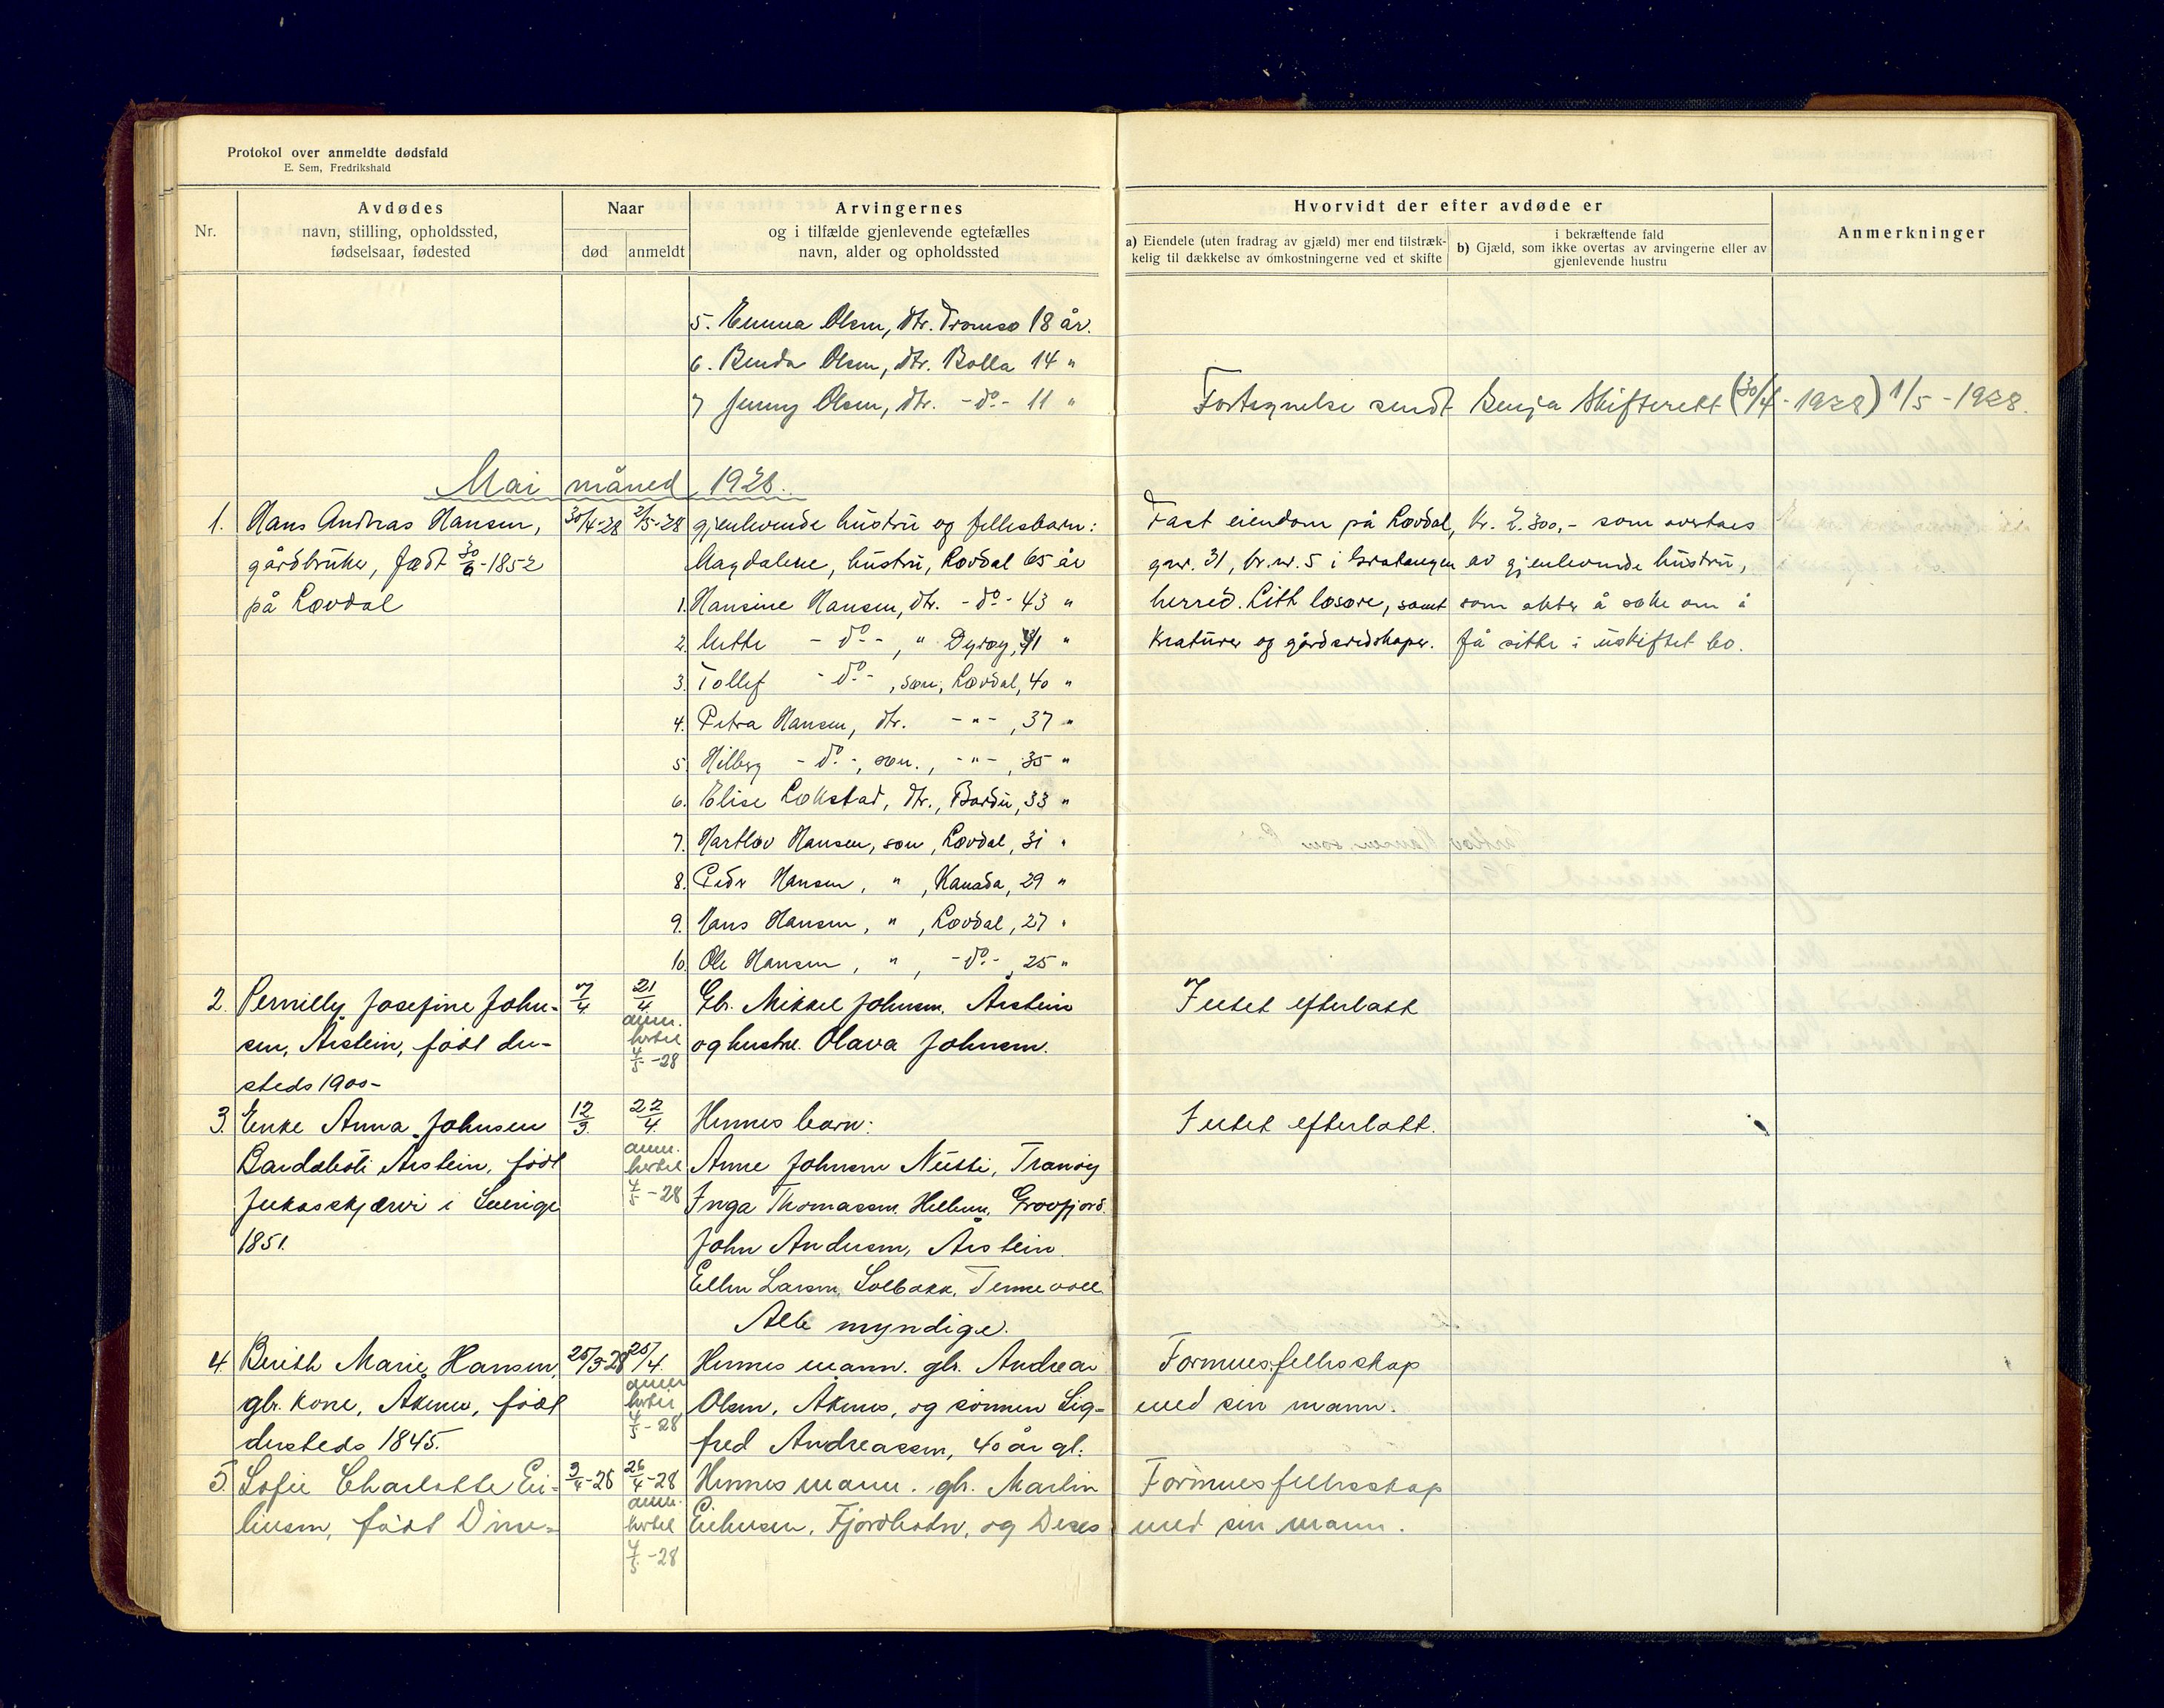 Protokol over anmeldte dødsfald
E. Sem, Fredrikshald
Nr.
Avdødes
navn, stilling, opholdssted,
fødselsaar, fødested
Naar
død
anmeldt
Arvingernes
og i tilfælde gjenlevende egtefælles
navn, alder og opholdssted
Hvorvidt der efter avdøde er
a) Eiendele (uten fradrag av gjæld) mer end tilstræk-
kelig til dækkelse av omkostningerne ved et skifte
i bekræftende fald
b) Gjæld, som ikke overtas av arvingerne eller av
gjenlevende hustru
Anmerkninger
5. Emma Olsen, dtr. Tromsø 18 år.
6. Olsen, dtr. Bolla 14 "
7 Jenny Olsen, dtr. -do- 11 "
Fortegnelse sendt Senja Skifterett (30/4 - 1928) 1/5 - 1928.
Mai måned 1928.
1. Hans Andreas Hansen, 30/4-28 2/5-28 gjenlevende hustru og fellesbarn:
gårdbruker, født 30/6-1852 Magdalene, hustru, Løvdal 65 år
på Løvdal 1. Hansine Hansen, dtr. -do- 43 "
2. -do-, " Dyrøy, 41 "
3. Tollef -do-, søn, Løvdal, 40 "
4. Petra Hansen, dtr. -"-, 37 "
5. Hilberg -do-, søn., -"-, 35 "
6. Elise Løkstad, dtr., Bardu, 33 "
7. Hartløv Hansen, søn, Løvdal, 31 "
8. Peder Hansen, ", Kanada, 29 "
9. Hans Hansen, ", Løvdal, 27 "
10. Ole Hansen, ", -do-, 25 "
Fast eiendom på Løvdal, kr. 2.300,- som overtaes
gnr. 31, br.nr. 5 i Gratangen av gjenlevende hustru,
herred. Litt løsøre, samt som akter å søke om å
kreaturer og gårdsredskaper. få sitte i uskiftet bo.
2. Pernilly Josefine John- 7/4 21/4 Gb. Mikkel Johnsen, Årstein
sen, Årstein, født der- anm. hertil 4/5-28 og hustru Olava Johnsen.
steds 1900-
Intet efterlatt
3. Enke Anna Johnsen 12/3 22/4 Hennes barn:
Årstein, født anm. hertil Anne Johnsen Nutti, Tranøy
Jukasskjærvi i Sverige 4/5-28 Inga Thomassen, Grovfjord.
1851. John Andersen, Årstein.
Ellen Larsen, Solbakk, Tennevoll
Alle myndige.
Intet efterlatt.
4. Berith Marie Hansen, 25/3-28 25/4. Hennes mann. gbr. Andreas
gbr. kone, Åknes, født anm. hertil Olsen, Åknes, og sønnen Sig-
dersteds 1845. 4/5-28 fred Andreassen, 40 år gl.
Formuesfellesskap
med sin mann.
5. Sofie Charlotte Ei- 3/4-28 26/4-28 Hennes mann. gbr. Martin
liusen, født anm. hertil Eiliusen, Fjordbotn, og Deres
4/5-28
Formuesfellesskap
med sin mann.